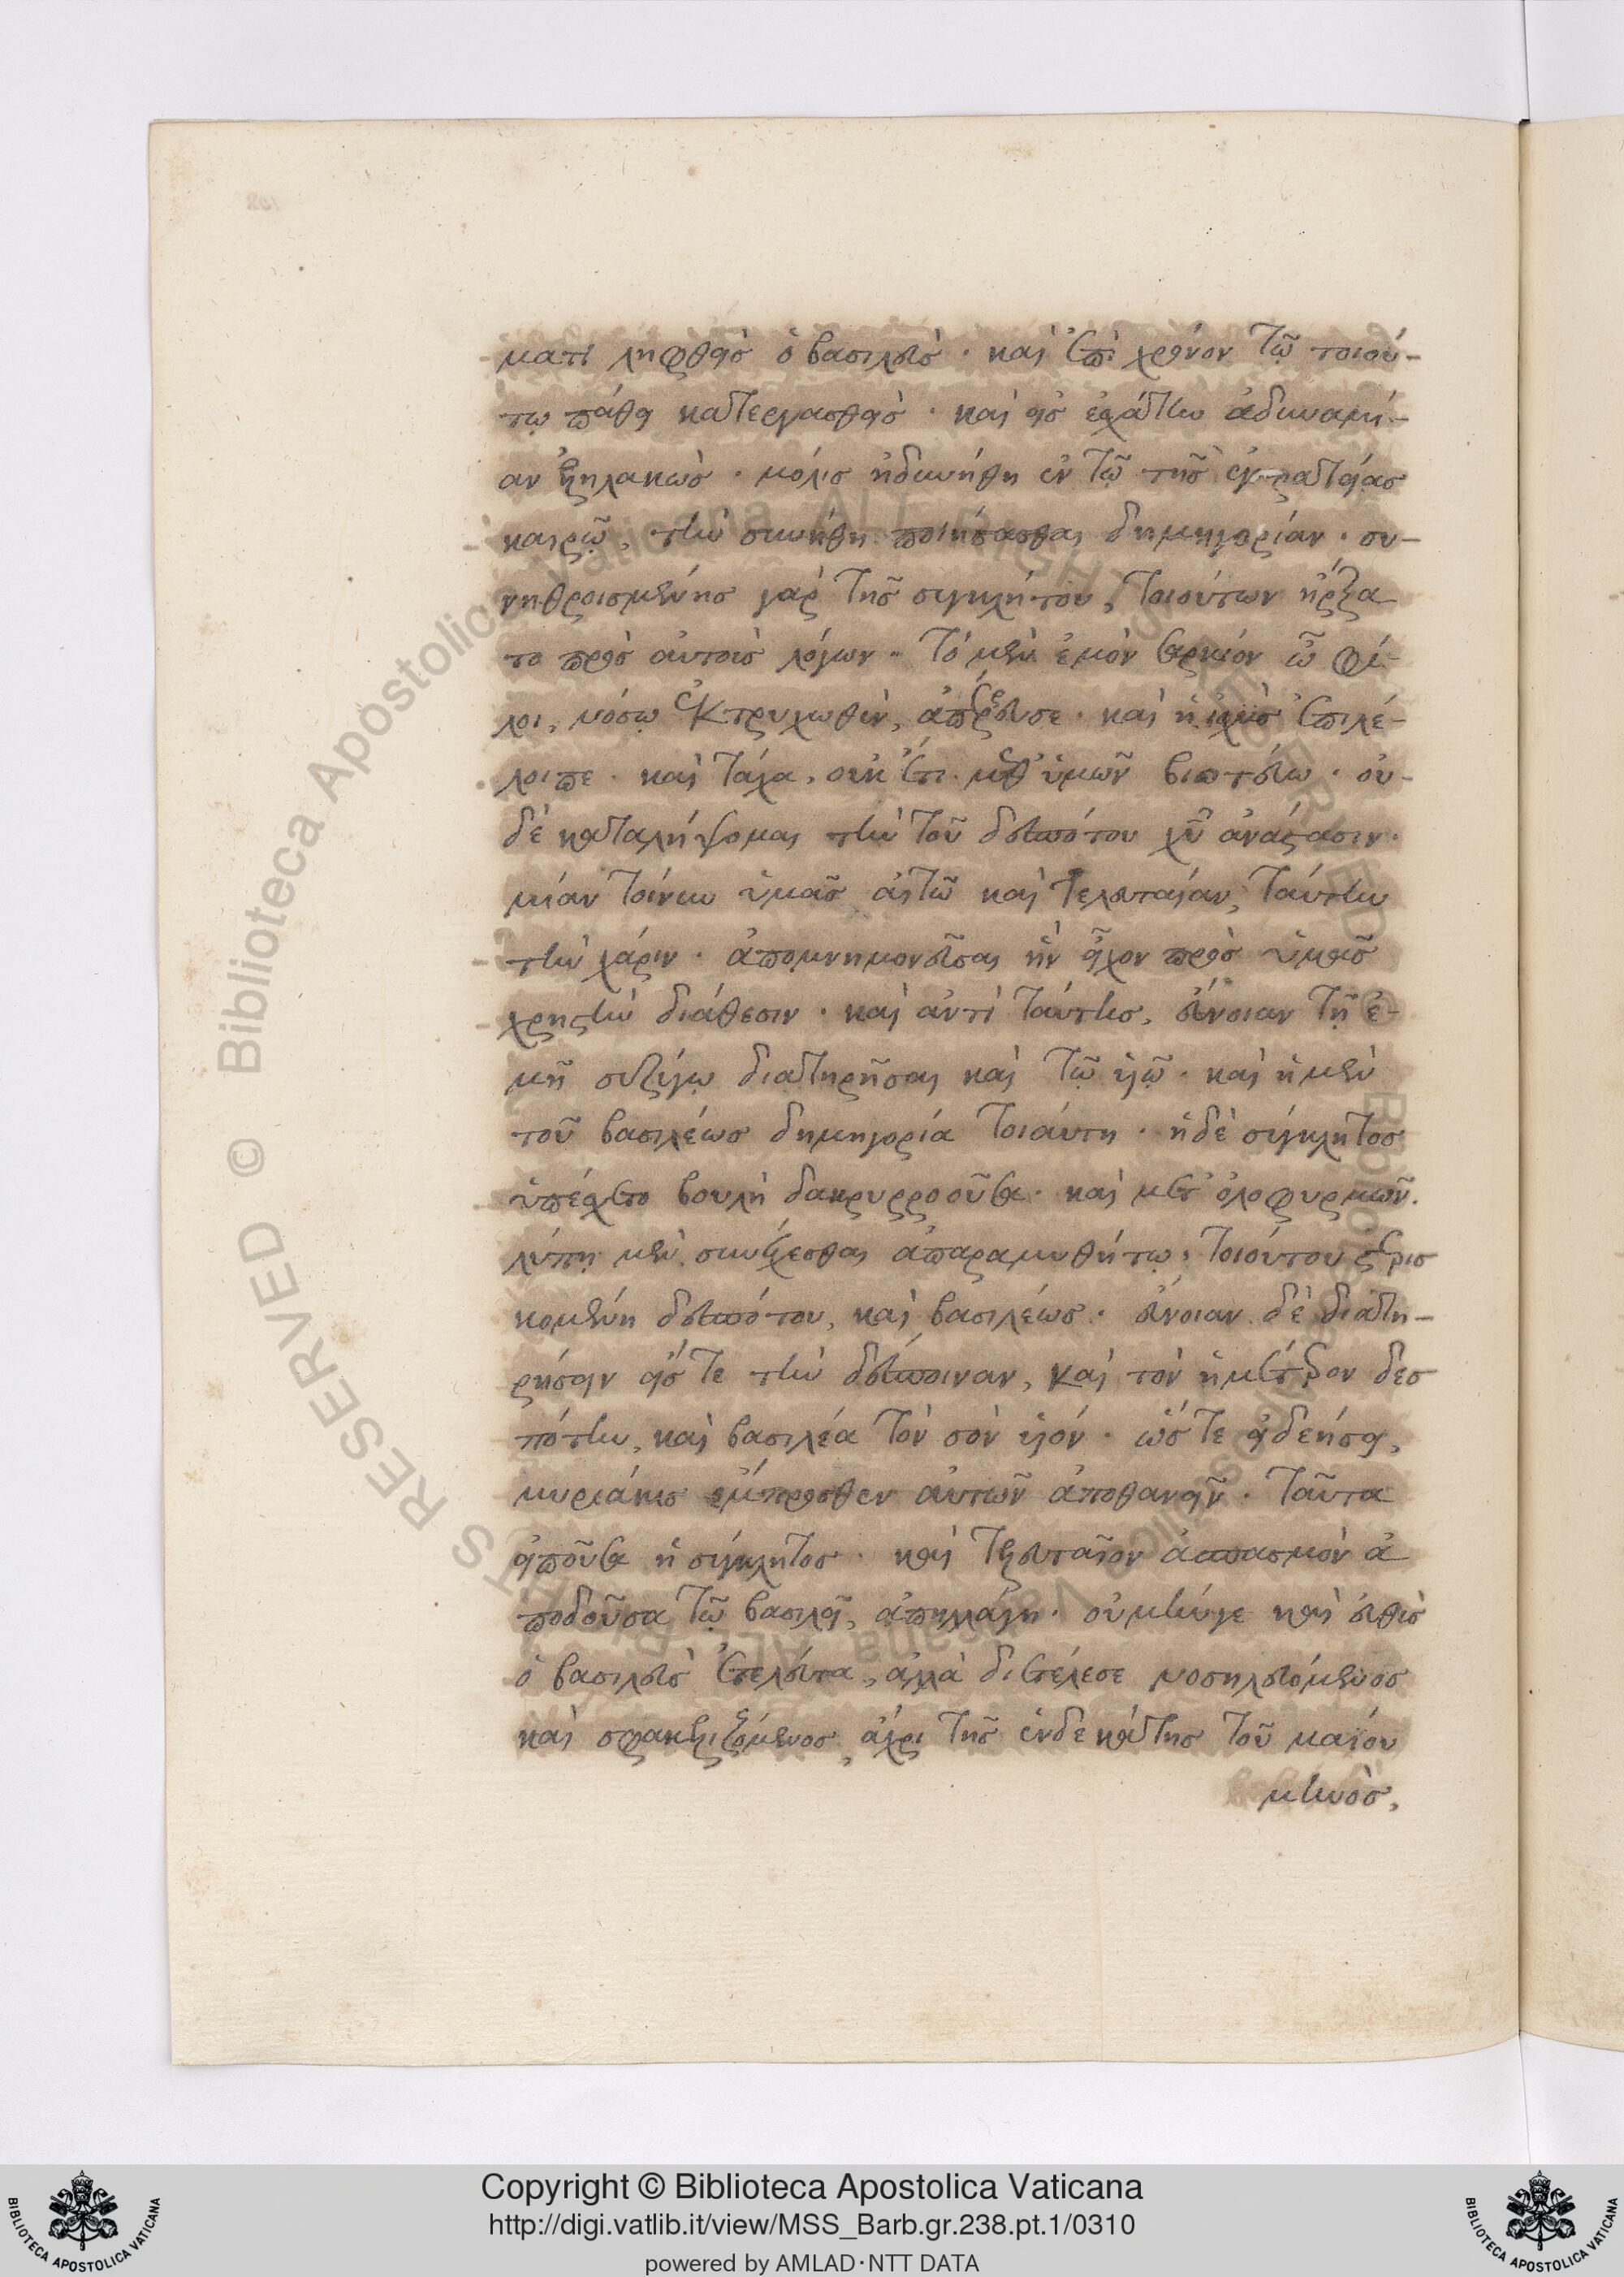 ματι ληφθεὶς ὁ βασιλεὺς · καὶ ἐπὶ χρόνον τῷ τοιού-
τῳ πάθει κατεργασθεὶς · καὶ εἰς ἐσχάτην ἀδυναμί-
αν ἐξηλακὼς · μόλις ἠδυνήθη ἐν τῷ τῆς ἐγκρατείας
καιρῷ, τὴν συνήθη ποιήσασθαι δημηγορίαν · συ-
νηθροισμένης γὰρ τῆς συγκλήτου, τοιούτων ἤρξα
το πρὸς αὐτοὺς λόγων · Τὸ μὲν ἐμὸν σαρκίον ὦ φί-
λοι, νόσῳ ἐκτρυχωθὲν, ἀπερρύησε · καὶ ἡ ἰσχὺς ἐπιλέ-
λοιπε · καὶ τάχα, οὐκ ἔτι μεθ' ὑμῶν βιοτεύω · οὐ-
δὲ καταλήψομαι τὴν τοῦ δεσπότου χῦ ἀνάστασιν ·
μίαν τοίνυν ὑμᾶς αἰτῶ καὶ τελευταίαν, ταύτην
τὴν χάριν · ἀπομνημονεῦσαι ἣν εἶχον πρὸς ὑμᾶς
χρηστὴν διάθεσιν · καὶ ἀντὶ ταύτης, εὔνοιαν τῇ ἐ-
μῇ συζύγῳ διατηρῆσαι καὶ τῷ υἱῷ · καὶ ἡ μὲν
τοῦ βασιλέως δημηγορία τοιαύτη · ἡ δὲ σύγκλητος
ὑπέσχετο βουλὴ δακρυρροοῦσα · καὶ μετ' ὀλοφυρμῶν ·
λύπῃ μὲν συνέχεσθαι ἀπαραμυθήτῳ, τοιούτου στερις
κομένη δεσπότου, καὶ βασιλέως · εὔνοιαν δὲ διατη-
ρήσειν εἴς τε τὴν δέσποιναν, καὶ τὸν ἡμέτερον δεσ
πότην, καὶ βασιλέα τὸν σὸν υἱόν · ὥς τε εἰ δεήσει,
μυριάκις ἔμπροσθεν αὐτῶν ἀποθανεῖν · Ταῦτα
εἰποῦσα ἡ σύγκλητος · καὶ τελευταῖον ἀσπασμὸν ἀ
ποδοῦσα τῷ βασιλεῖ, ἀπηλλάγη · οὐ μήν γε καὶ εὐθὺς
ὁ βασιλεὺς ἐτελεύτα, ἀλλὰ διετέλεσε νοσηλευόμενος
καὶ σφακελιζόμενος, ἄχρι τῆς ἑνδεκάτης τοῦ μαΐου
μηνὸς,
Biblioteca Apostolica Vaticana ALL RIGHTS RESERVED ©
Copyright © Biblioteca Apostolica Vaticana
http://digi.vatlib.it/view/MSS_Barb.gr.238.pt.1/0310
powered by AMLAD·NTT DATA
BIBLIOTECA APOSTOLICA VATICANA
BIBLIOTECA APOSTOLICA VATICANA